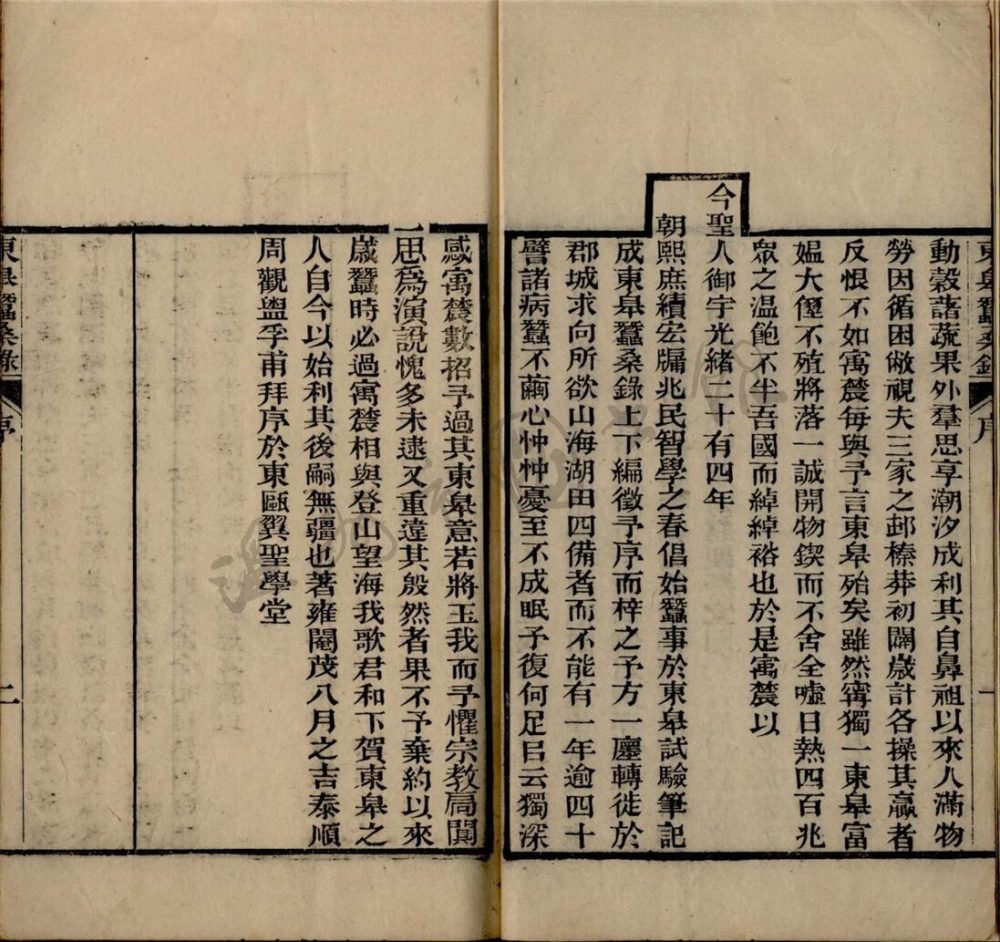 東皐蠶桑錄 序 一
動穀諸蔬果外羣思享潮汐成利其自鼻祖以來人滿物
勞因循困敝視夫三家之邨榛莽初闢歲計各操其贏者
反恨不如寓農每與予言東皐殆矣雖然寗獨一東皐富
媪大傴不殖將落一誠開物鍥而不舍全噓日熱四百兆
眾之温飽不半吾國而綽綽裕也於是寓農以
今聖人御宇光緒二十有四年
朝熙庶績宏牖兆民智學之春倡始蠶事於東皐試驗筆記
成東皐蠶桑錄上下編徵予序而梓之予方一廛轉徙於
郡城求向所欲山海湖田四備者而不能有一年逾四十
譬諸病蠶不繭心忡忡憂至不成眠予復何足㠯云獨深
感寓農數招予過其東皐意若將玉我而予懼宗教局闃
一思為演說愧多未逮又重違其殷然者果不予棄約以來
歲蠶時必過寓農相與登山望海我歌君和下賀東皐之
人自今以始利其後嗣無疆也著雍閹茂八月之吉泰順
周觀盥孚甫拜序於東甌翼聖學堂
東皐蠶桑錄 序 二